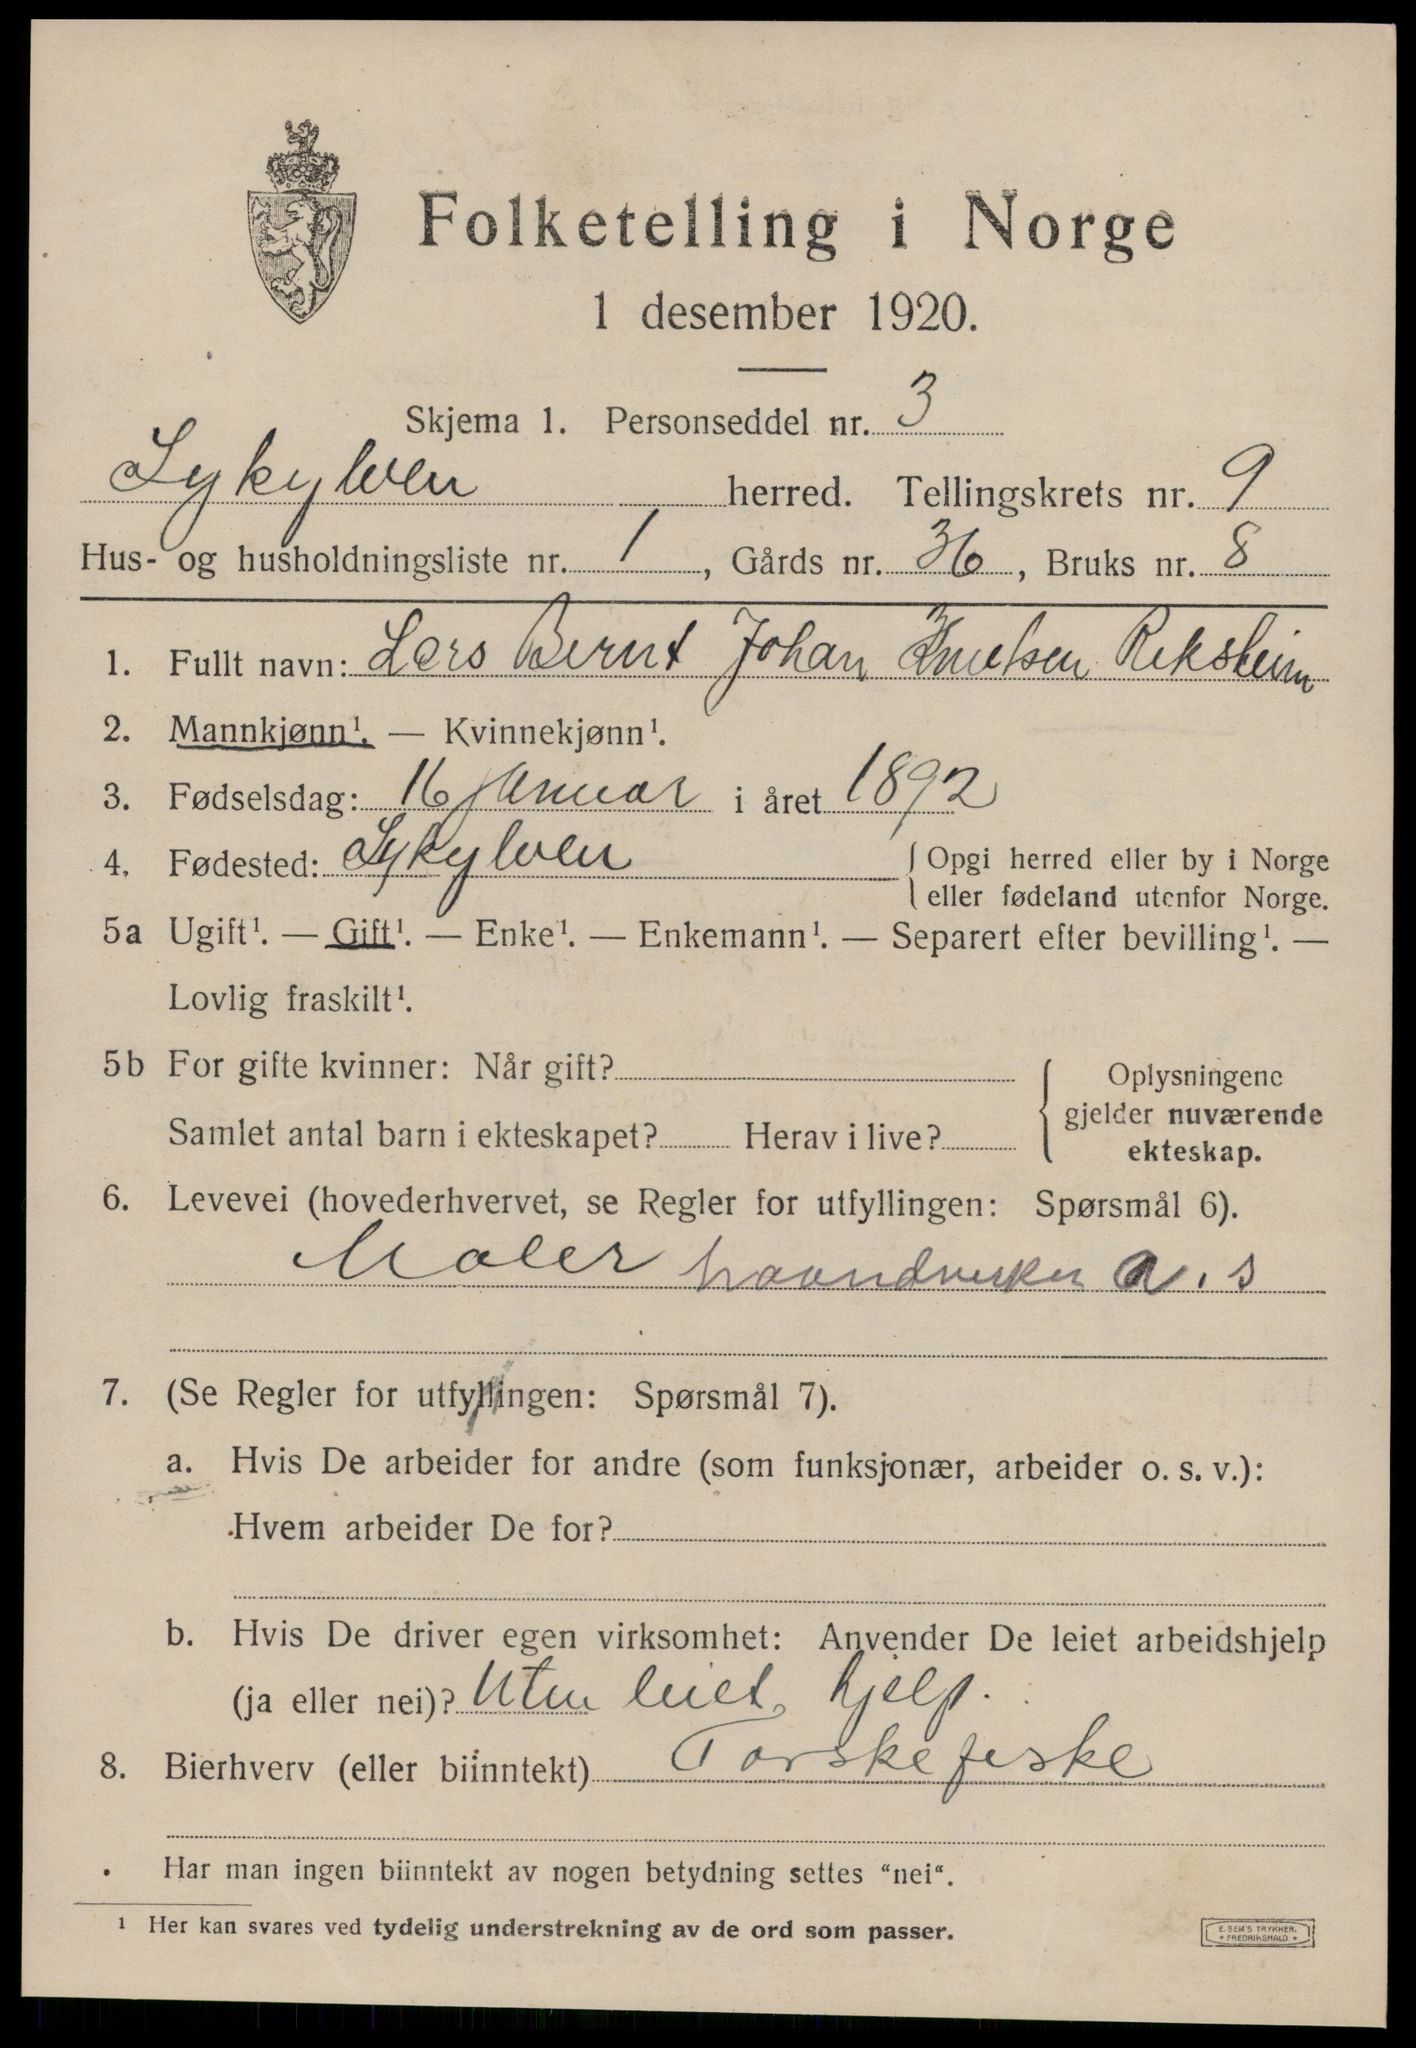 Folketelling i Norge
1 desember 1920.
Skjema 1. Personseddel nr. 3
Sykylven herred. Tellingskrets nr. 9
Hus- og husholdningsliste nr. 1, Gårds nr. 36, Bruks nr. 8
1. Fullt navn: Lars Bernt Johan Knutsen Riksheim
2. Mannkjønn¹. — Kvinnekjønn¹.
3. Fødselsdag: 16 januar i året 1892
4. Fødested: Sykylven { Opgi herred eller by i Norge
eller fødeland utenfor Norge.
5a Ugift¹. — Gift¹. — Enke¹. — Enkemann¹. — Separert efter bevilling¹. —
Lovlig fraskilt¹.
5b For gifte kvinner: Når gift?
Samlet antal barn i ekteskapet? Herav i live?
{ Oplysningene
gjelder nuværende
ekteskap.
6. Levevei (hovederhvervet, se Regler for utfyllingen: Spørsmål 6).
Maler haandverker a. s
7. (Se Regler for utfyllingen: Spørsmål 7).
a. Hvis De arbeider for andre (som funksjonær, arbeider o. s. v.):
Hvem arbeider De for?
b. Hvis De driver egen virksomhet: Anvender De leiet arbeidshjelp
(ja eller nei)? Uten leiet hjelp.
8. Bierhverv (eller biinntekt) Torskefiske
Har man ingen biinntekt av nogen betydning settes "nei".
¹ Her kan svares ved tydelig understrekning av de ord som passer.
E. SEM'S TRYKKER.
• FREDRIKSHALD •